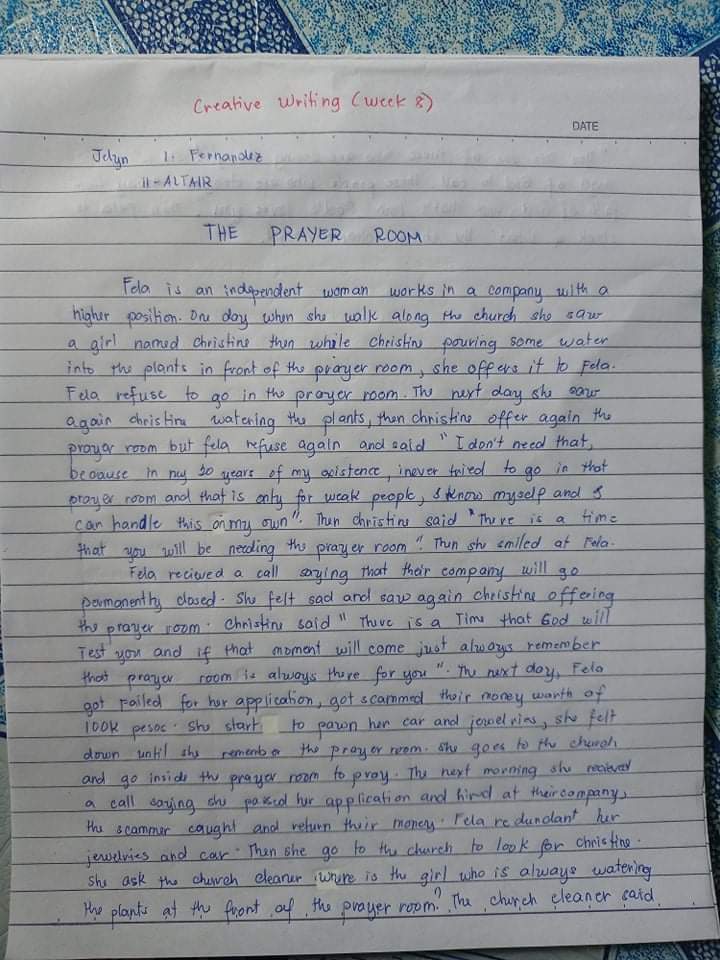 Creative Writing (Week 8)
DATE
Jelyn I. Fernandez
11-ALTAIR
THE PRAYER ROOM
Fela is an independent woman works in a company with a
higher position. One day when she walk along the church she saw
a girl named christine then while Christine pouring some water
into the plants in front of the prayer room, she offers it to Fela.
Fela refuse to go in the prayer room. The next day she saw
again christine watering the plants, then christine offer again the
prayer room but fela refuse again and said "I don't need that,
because in my 30 years of my existence, inever tried to go in that
prayer room and that is only for weak people, I know myself and I
can handle this on my own". Then christine said "There is a time
that you will be needing the prayer room". Then she smiled at Fela.
Fela recived a call saying that their company will go
permanently closed. She felt sad and saw again christine offering
the prayer room. Christine said "There is a Time that God will
Test you and if that moment will come just always remember
that prayer room is always there for you". The next day, Fela
got failed for her application, got scammed their money worth of
100k pesos. She start to pawn her car and jewelries, she felt
down until she remember the prayer room. She goes to the church
and go inside the prayer room to pray. The next morning she recieved
a call saying she passed her application and hired at their company,
the scammer caught and return their money. Fela redundant her
jewelries and car. Then she go to the church to look for christine.
She ask the church cleaner "Where is the girl who is always watering
the plants at the front of the prayer room? The church cleaner said